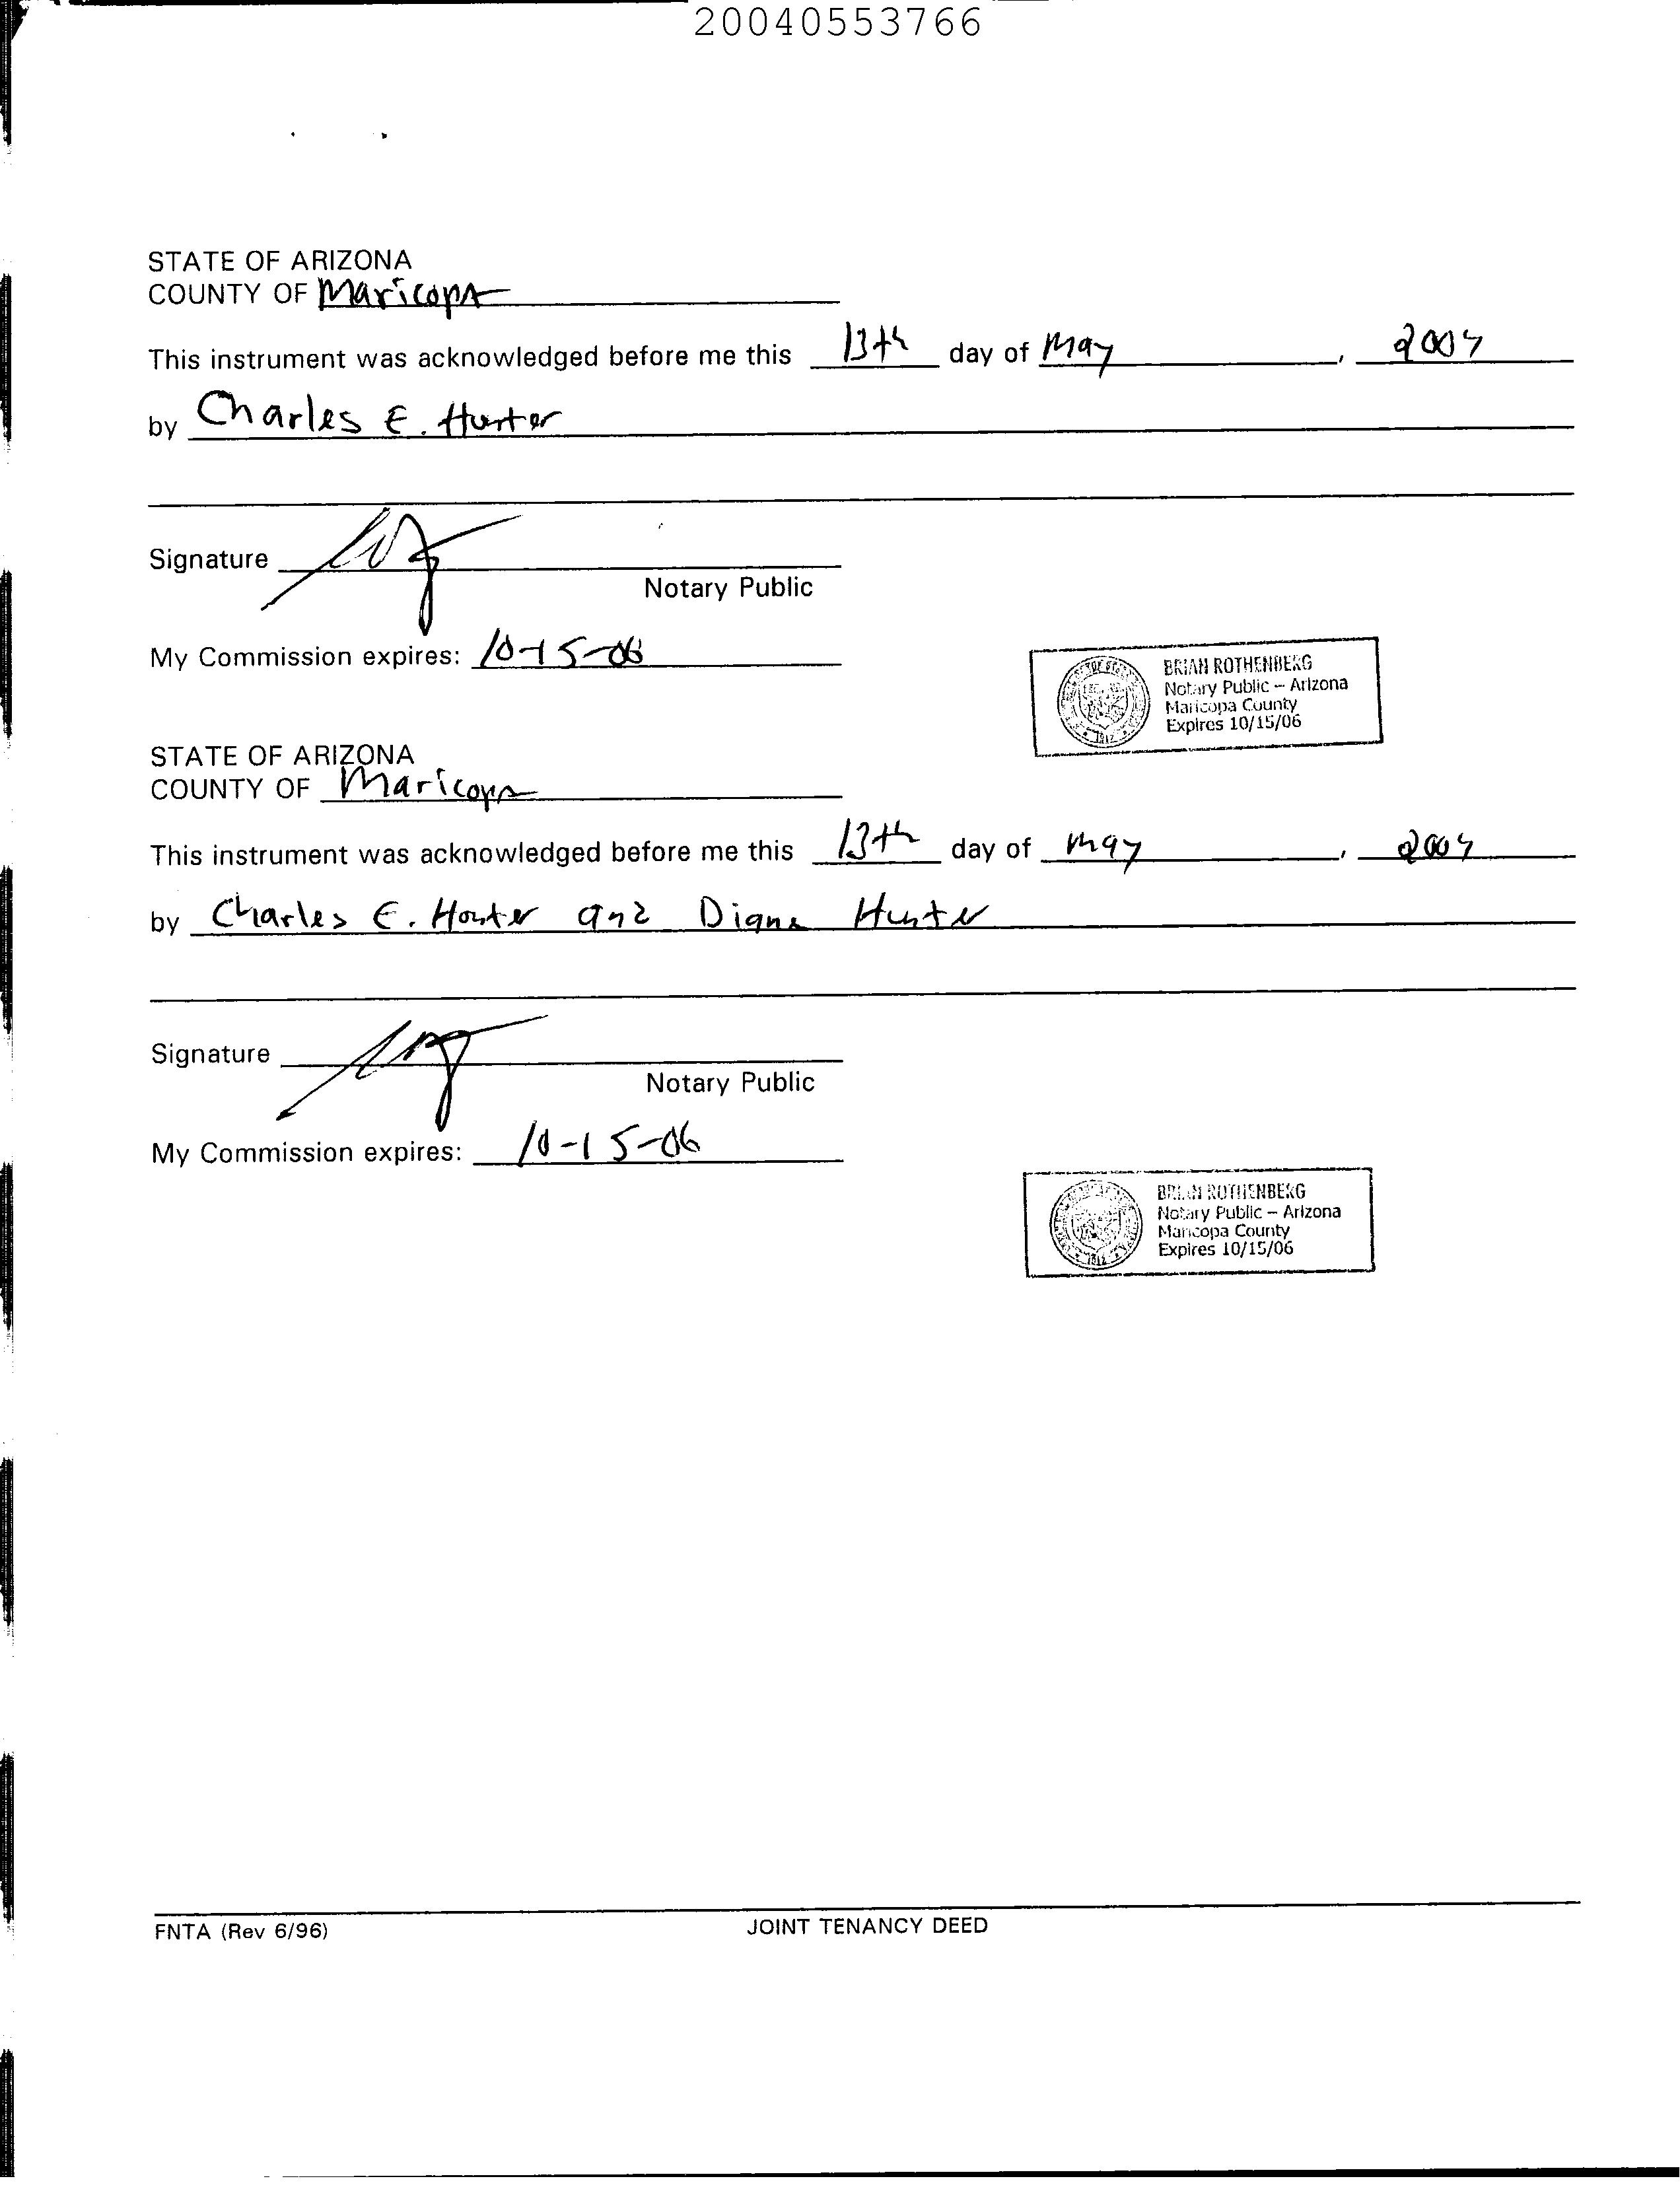 20040553766
STATE OF ARIZONA
COUNTY OF Maricopa
This instrument was acknowledged before me this 13th day of May, 2004
by Charles E. Hunter
Signature
Notary Public
My Commission expires: 10-15-06
BRIAN ROTHENBERG
Notary Public - Arizona
Maricopa County
Expires 10/15/06
STATE OF ARIZONA
COUNTY OF Maricopa
This instrument was acknowledged before me this 13th day of May, 2004
by Charles E. Hunter and Diane Hunter
Signature
Notary Public
My Commission expires: 10-15-06
BRIAN ROTHENBERG
Notary Public - Arizona
Maricopa County
Expires 10/15/06
FNTA (Rev 6/96) JOINT TENANCY DEED